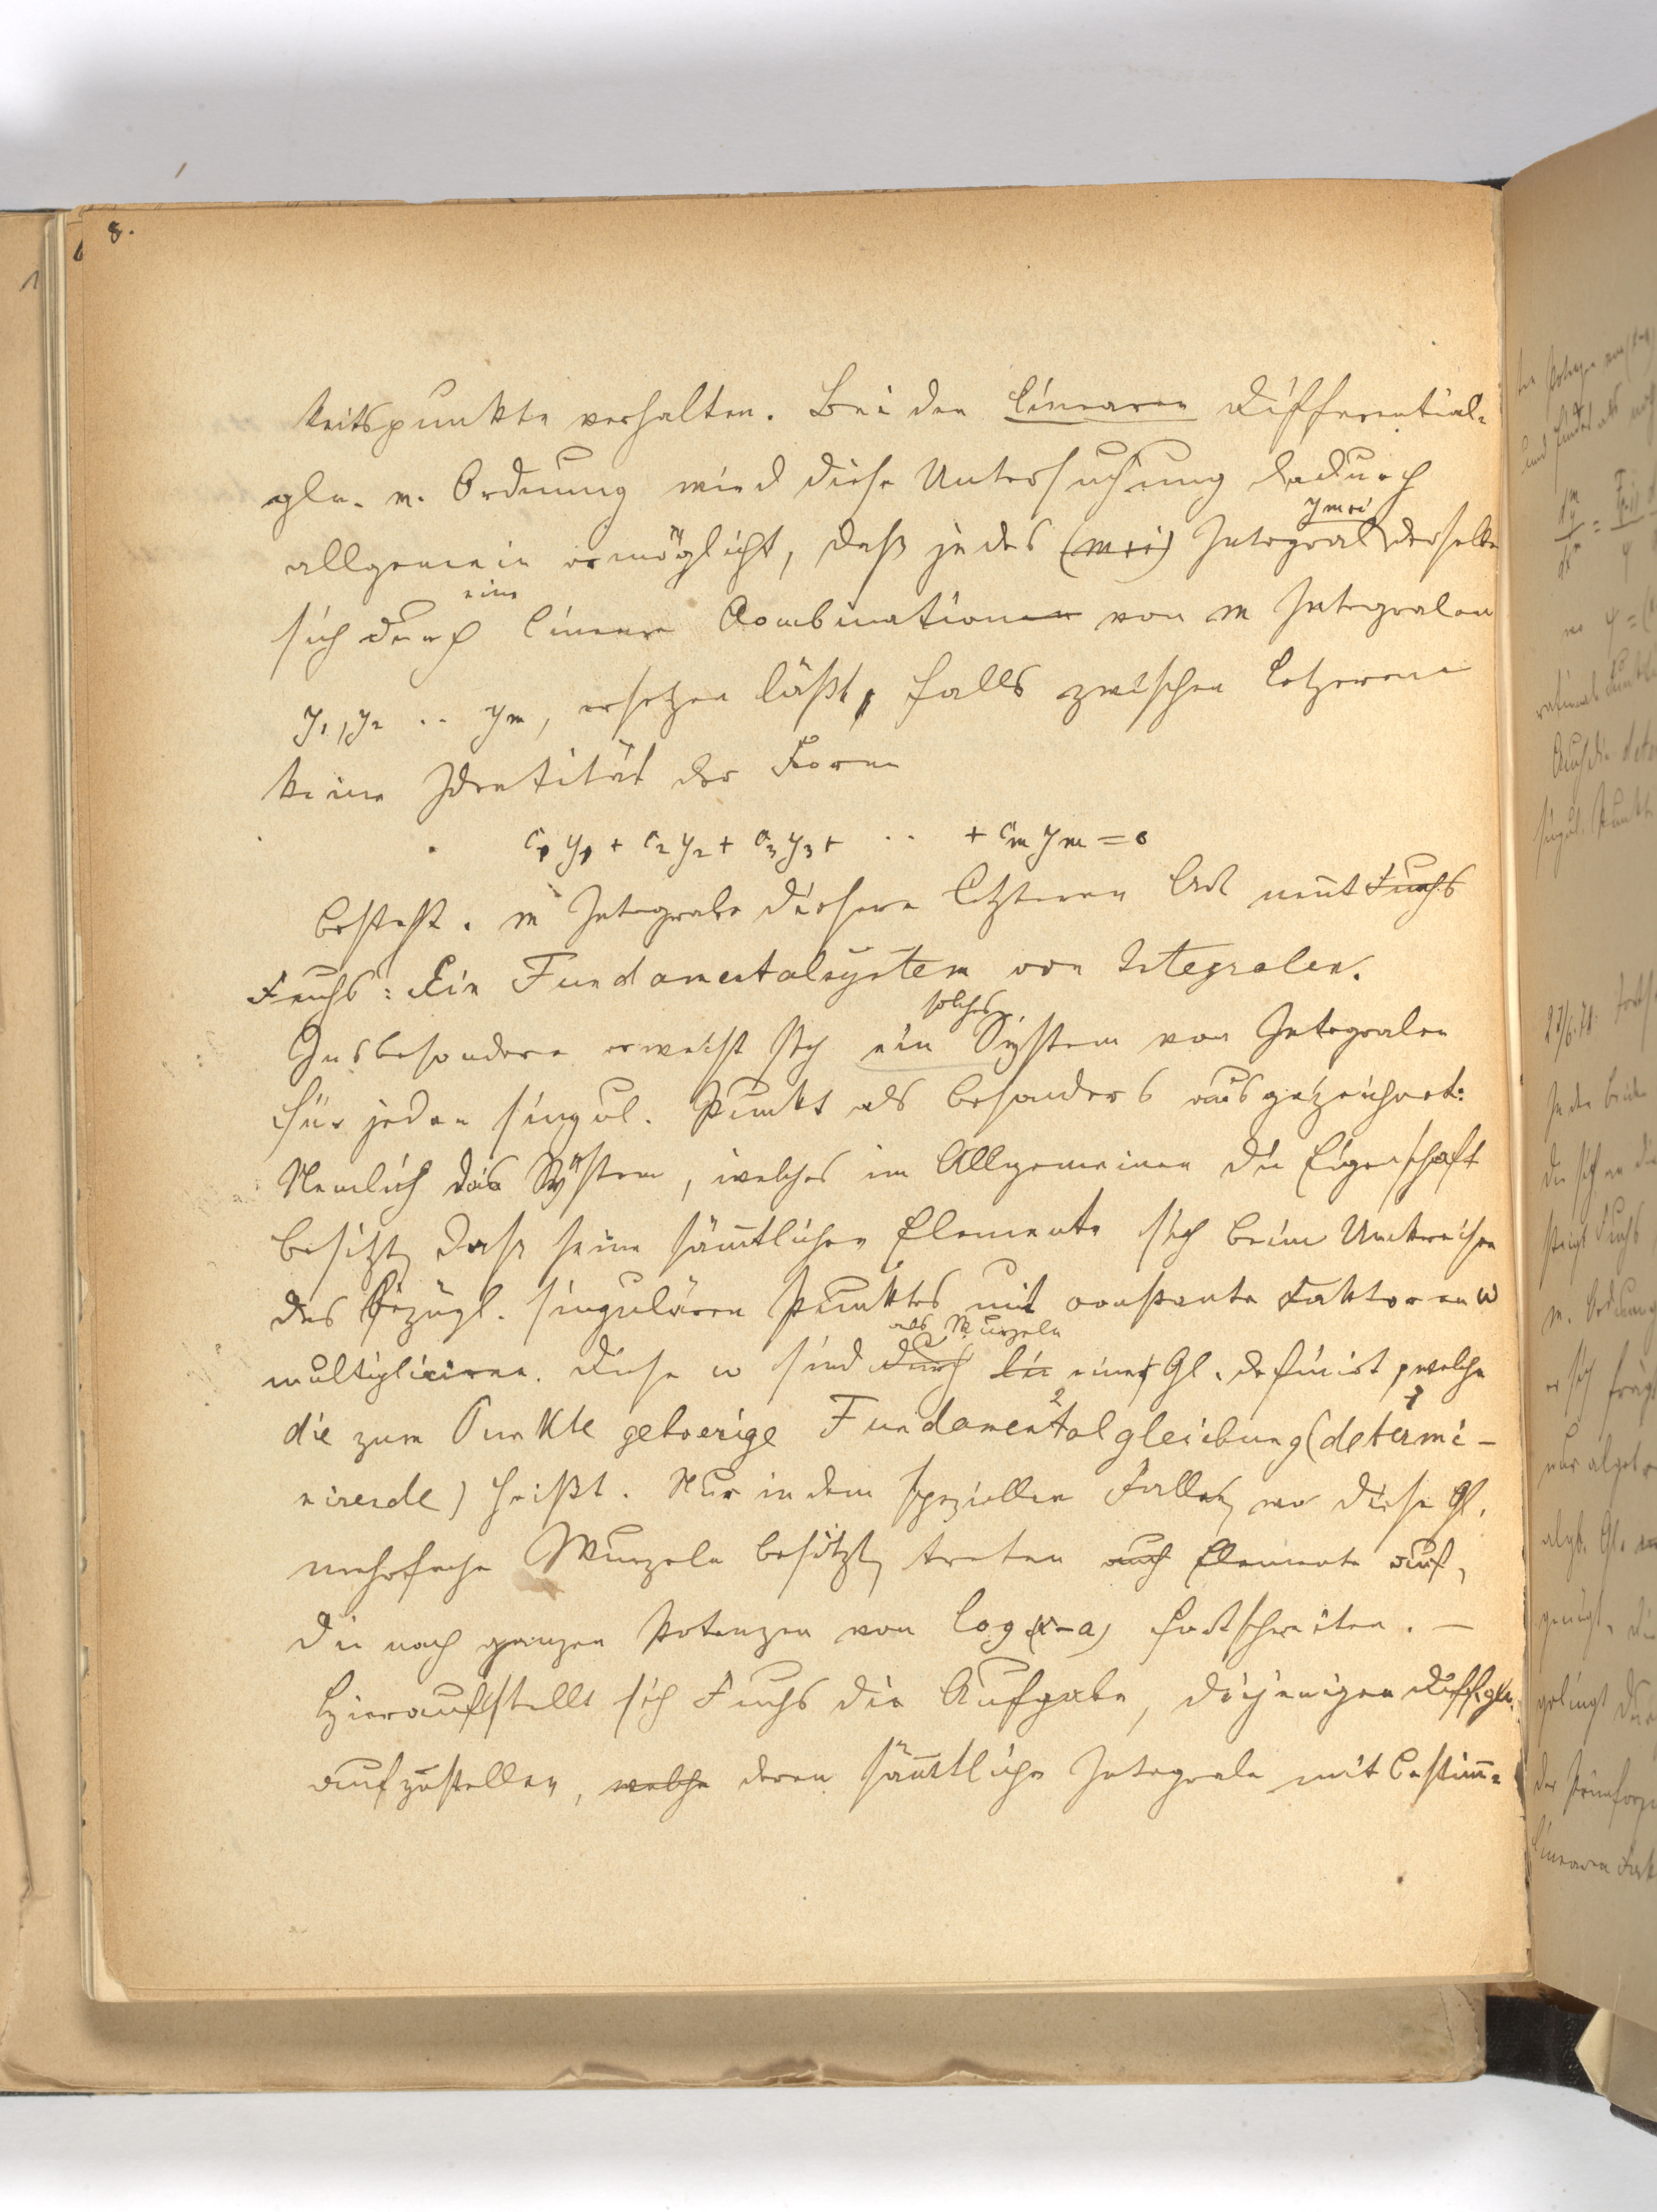 8.
keitspunkte verhalten. Bei den linearen Differential-
gln. m. Ordnung wird diese Untersuchung dadurch
allgemein ermöglicht, daß jedes (m+i) Integral y_{m+i} derselben
sich durch eine lineare Combinationen von m Integralen
y₁, y₂ .. yₘ, ersetzen läßt, falls zwischen letzeren
keine Identität der Form
c₁y₁ + c₂y₂ + c₃y₃ + .. + cₘyₘ = 0
besteht. m Integrale dieser letzteren Art nennt Fuchs
Fuchs: Ein Fundamentalsystem von Integralen.
Insbesondere erweist sich ein solches System von Integralen
für jeden singul. Punkt als besonders ausgezeichnet:
Nemlich das System, welches im Allgemeinen die Eigenschaft
besitzt, dass seine sämtlichen Elemente sich beim Umkreisen
des bezügl. singulären Punktes mit constante Faktoren ω
multipliciren. Diese ω sind durch als Wurzeln die einer Gl. definirt, welche
die zum Punkte gehoerige Fundamentalgleichung (determi-
nirende) heißt. Nur in dem speziellen Falle, wo diese Gl.
mehrfache Wurzeln besitzt, treten auch Elemente auf,
die nach ganzen Potenzen von log (x-a) fortschreiten. —
Hierauf stellt sich Fuchs die Aufgabe, diejenigen Diffgln.
aufzustellen, welche deren sämtliche Integrale mit bestimm-